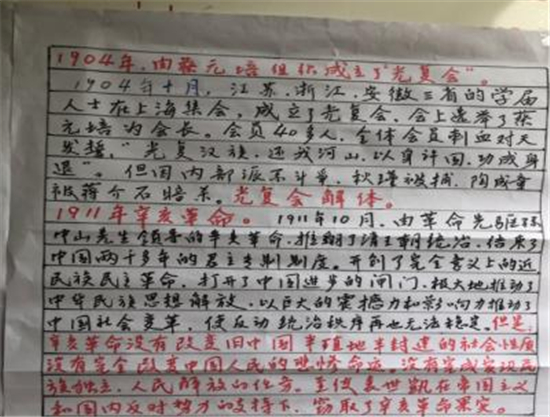 1904年,由蔡元培组织成立了"光复会"。
1904年十月,江苏、浙江、安徽三省的学届
人士在上海集会,成立了光复会,会上选举了蔡
元培为会长。会员40多人,全体会员刺血对天
发誓,"光复汉族,还我河山,以身许国,功成身
退"。但国内部派不斗争,秋瑾被捕,陶成章
被蒋介石暗杀。光复会解体。
1911年辛亥革命。1911年10月,由革命先驱孙
中山先生领导的辛亥革命,推翻了清王朝统治,结束了
中国两千多年的君主专制制度。开创了完全意义上的近
民族民主革命,打开了中国进步的闸门,极大地推动了
中华民族思想解放,以巨大的震撼力和影响力推动了
中国社会变革,使反动统治秩序再也无法稳定。但是,
辛亥革命没有改变旧中国半殖地半封建的社会性质
没有完全改变中国人民的悲惨命运,没有完成实现民
族独立,人民解放的任务。至使袁世凯在帝国主义
和国内反对势力的支持下,窃取了辛亥革命果实。